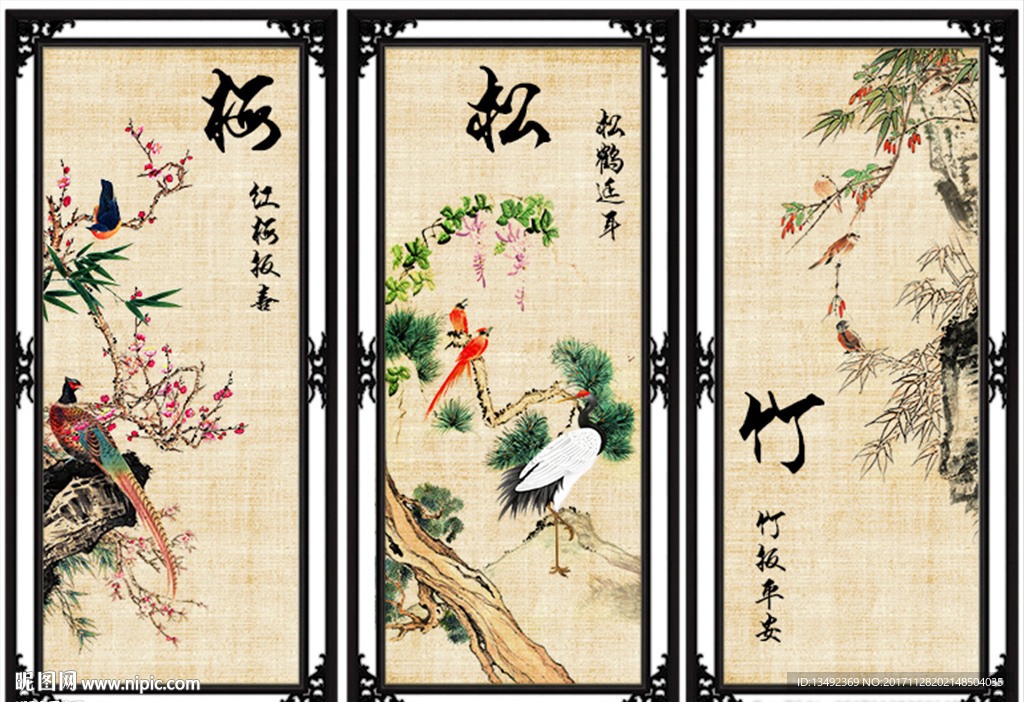 梅
红梅报喜
松
松鹤延年
竹
竹报平安
昵图网 www.nipic.com
ID:13492369 NO:20171128202148504035